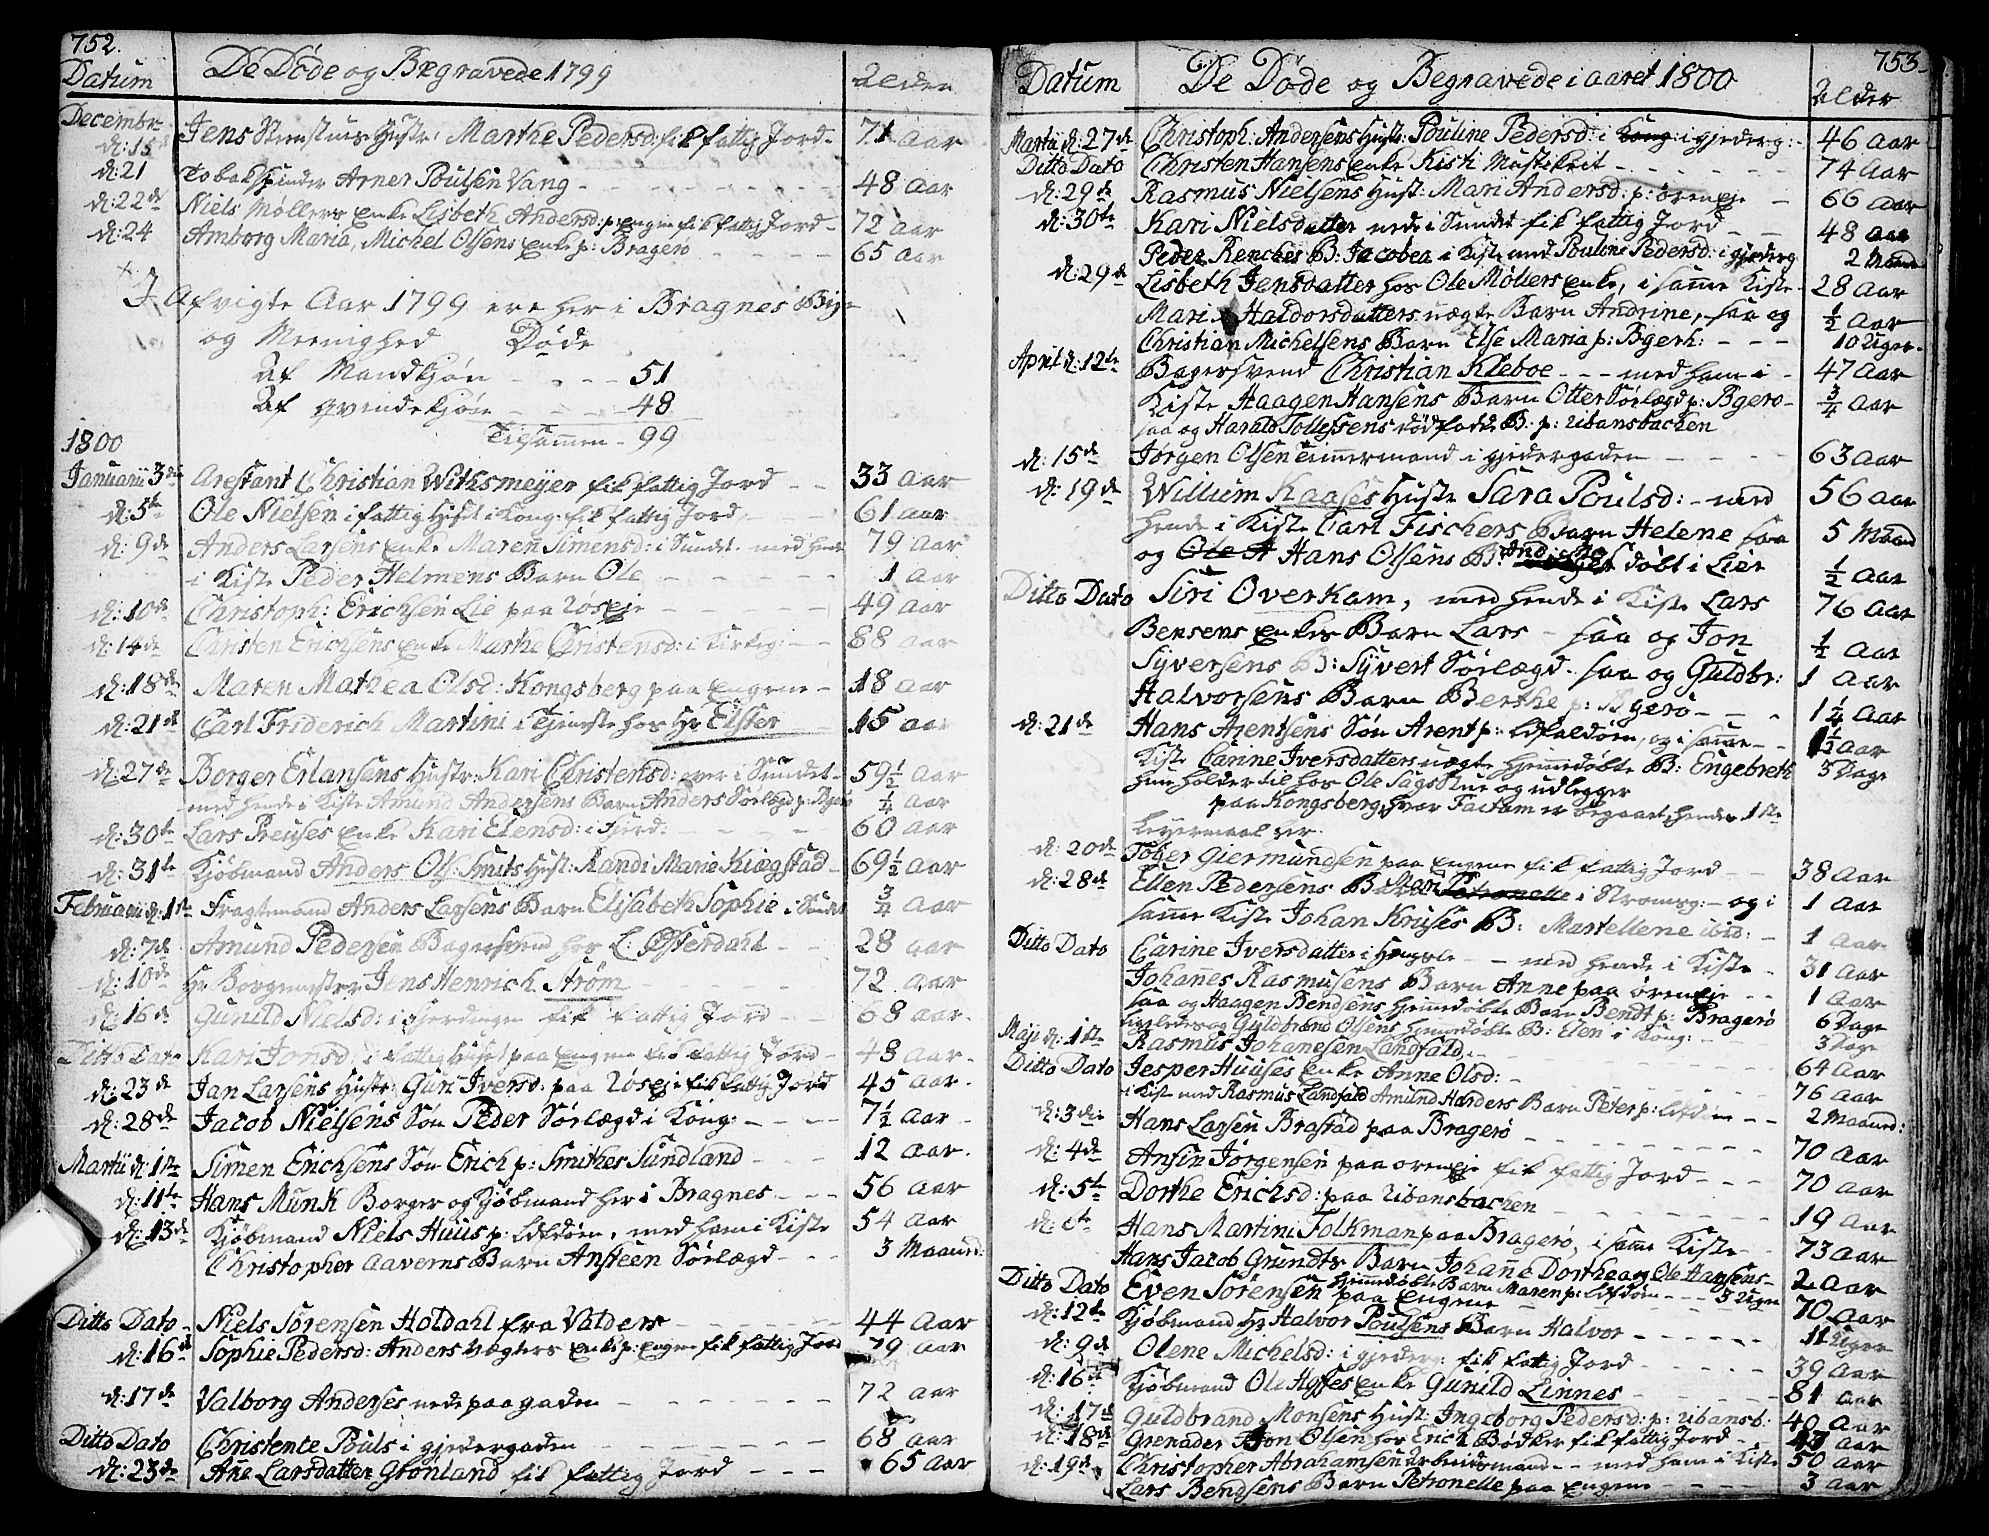 752.
Datum De Døde og Begravede 1799 Alder
Decembr d: 15 Jens Hustr: Marthe Pedersd: fik fattig Jord - 71 Aar
d: 21 Tobakspinder Arner Poulsen Vang - 48 Aar
d: 22de Niels Møllers Enke Lisbeth Andersd: p: Engene fik fattig Jord - 72 Aar
d: 24 Amborg Maria, Michel Olsens Enke p: Bragerø - 65 Aar
J Afvigte Aar 1799 ere her i Bragnes Bye
og Meenighed Døde
Af Mandkjøn - - - 51
Af Qvindekjøn - - - 48
Tilsammen - 99
1800
Januarii 3de Arestant Christian Withsmeyer fik fattig Jord - - 33 Aar
d: 5te Ole Nielsen i fattig Huset i Kong: fik fattig Jord - 61 Aar
d: 9de Anders Larsens Enke Maren Simensd: i Sundet med hende 79 Aar
i Kiste Peder Helmens Barn Ole - 1 Aar
d: 10de Christoph: Erichsen Lie paa Løseje - 49 Aar
d: 14de Christen Erichsens Enke Marthe Christensd: i Kirkeg: - 88 Aar
d: 18de Maren Mathea Olsd: Kongsberg paa Engene - 18 Aar
d: 21de Carl Friderich Martini i Tjeneste hos Hr Elster 15 Aar
d: 27de Borger Erlansens Hustr: Kari Christensd: over i Sundet - 59½ Aar
med hende i Kiste Amund Andersens Barn Anders Sørlægd p: Bgerø ¼ Aar
d: 30te Lars Preuses Enke Kari Elensd: i Fjerd: - 60 Aar
d: 31te Kjøbmand Anders Ols: Smits Hust: Randi Marie Kiegstad - 69½ Aar
Februarii d: 1te Fragtemand Anders Larsens Barn Elisabeth Sophie i Sundet ¾ Aar
d: 7de Amund Pedersen Bagersvend hos L: Østerdahl - 28 Aar
d: 10de Hr Borgemester Jens Henrich Strøm - 72 Aar
d: 16de Gunild Nielsd: i Fjerdingen fik fattig Jord - 68 Aar
Ditto Dato Kari Jonsd: i fattig Huset paa Engene fik fattig Jord - 48 Aar
d: 23de Jan Larsens Hustr: Guri Iversd: paa Løseje fik fattig Jord 45 Aar
d: 28de Jacob Nielsens Søn Peder Sørlægd i Kong: - 7½ Aar
Martii d: 1te Simen Erichsens Søn Erich p: Smithes Sundland - 12 Aar
d: 11te Hans Munk Borger og Kjøbmand her i Bragnes - 56 Aar
d: 13de Kjøbmand Niels Huus p: , med ham i Kiste 54 Aar
Christopher Aaverns Barn Ansteen Sørlægd - 3 Maaned:
Ditto Dato - Niels Sørensen Holdahl fra Valders - 44 Aar
d: 16de Sophie Pedersd: Anders Vægters Enke p: Engene fik fattig Jord 79 Aar
d: 17de Valborg Anderses nede paa gaden - 72 Aar
Ditto Dato Christente Pouls i gjedergaden - 68 Aar
d: 23de Anne Larsdatter Grønland fik fattig Jord - 65 Aar
753.
Datum De Døde og Begravede i aaret 1800 Alder
Martii d: 27de Christoph: Andersens Hust: Pouline Pedersd: i gjederg: - 46 Aar
Ditto Dato Christen Hansens Enke Kisti - 74 Aar
d: 29de Rasmus Nielsens Hust: Mari Andersd: p: ørenEje - 66 Aar
d: 30te Kari Nielsdatter nede i Sundet fik fattig Jord - 48 Aar
Peder Renches B: Jacobea i Kiste med Pouline Pedersd: i gjederg 2 Maan
d: 29de Lisbeth Jensdatter hos Ole Møllers Enke, i samme Kiste - 28 Aar
Mari Haldorsdatters uægte Barn Andrine, saa og ½ Aar
Christian Michelsens Barn Else Maria p: Bgerh: - - - 10 Uger
April d: 12te Bagersvend Christian Kleboe - - - med ham i - 47 Aar
Kiste Haagen Hansens Barn Otter Sørlægd p: Bgerø - ¾ Aar
saa og Harald Tollefsens dødfødde B: p: Ubansbachen
d: 15de Jørgen Olsen Timmermand i gjedergaden - 63 Aar
d: 19de Willium Kaases Hustr Sara Poulsd: - med 56 Aar
hende i Kiste Carl Fischers Barn Helene saa 5 Maaned
og Ole A Hans Olsens B: døbt i Lier ½ Aar
Ditto Dato Siri Overkam, med hende i Kiste Lars 76 Aar
Bensens Enkes Barn Lars - saa og Jon ½ Aar
Syversens B: Syvert Sørlægd - saa og Guldbr: 1 Aar
Halvorsens Barn Berthe p: Bgerø - 1¼ Aar
d: 21de Hans Arentsens Søn Arent p: , og i samme - 1½ Aar
Kiste Carine Iversdatters uægte Hjemmedøbte B: Engebreth 3 Dage
hun holder til hos Ole Sagstue og udlegger
paa Kongsberg, hvor Factum er begaaet, hendes 1ste
Leyermaal her.
d: 20de Tolger Giermundsen paa Engene fik fattig Jord - 38 Aar
d: 28de Ellen Pedersens B: Mari Petronelle i Stromsg: - og i 1 Aar
samme Kiste Johan Kruses B: Martellene ibid: - 1 Aar
Ditto Dato Carine Iversdatter i - - med hende i Kiste - 31 Aar
Johannes Rasmusens Barn Anne paa ørenEje - - 1 Aar
saa og Haagen Bendsens Hjemmedøbte Barn Bendt p: Bragerø 6 Dage
ligeledes og Guldbrand Olsens Hjemmedøbte B: Elen i Kong: - 3 Dage
Maji d: 1te Rasmus Johanesen Landfald - 64 Aar
Ditto Dato Jesper Huuses Enke Anne Olsd: - 76 Aar
i Kist med Rasmus Landfald Amund Harders Barn Peter p: - 2 Maaned:
d: 3die Hans Larsen Brastad paa Bragerø - 70 Aar
d: 4de Ansin Jørgensen paa ørenEje fik fattig Jord - - - 70 Aar
d: 5te Dorthe Erichsd: paa Ubansbachen - 19 Aar
d: 6te Hans Martini Tolkman paa Bragerø, i samme Kiste - 73 Aar
Hans Jacob Grundts Barn Johanne Dorthea og Ole Hansens - 2 Aar
Hjemmedøbte Barn Maren p: - - - 3 Uger
Ditto Dato Even Sørensen paa Engene - 70 Aar
d: 12te Kjøbmand Hr Halvor Poulsens Barn Halvor - 11 Uger
d: 9de Olene Michelsd: i gjederg: fik fattig Jord - 39 Aar
d: 16de Kjøbmand Ole Enke Gunild Linnes - 81 Aar
d: 17de Guldbrand Monsens Hust: Ingeborg Pedersd: p: Ubansb: 40 Aar
d: 18de Grenader Jon Olsen hos Erich Bødker fik fattig Jord - Aar
d: 19de Christopher Abrahamsen Arbeidsmand - - med ham i Kiste 50 Aar
Lars Bendsens Barn Petronelle paa Engene - 3 Aar